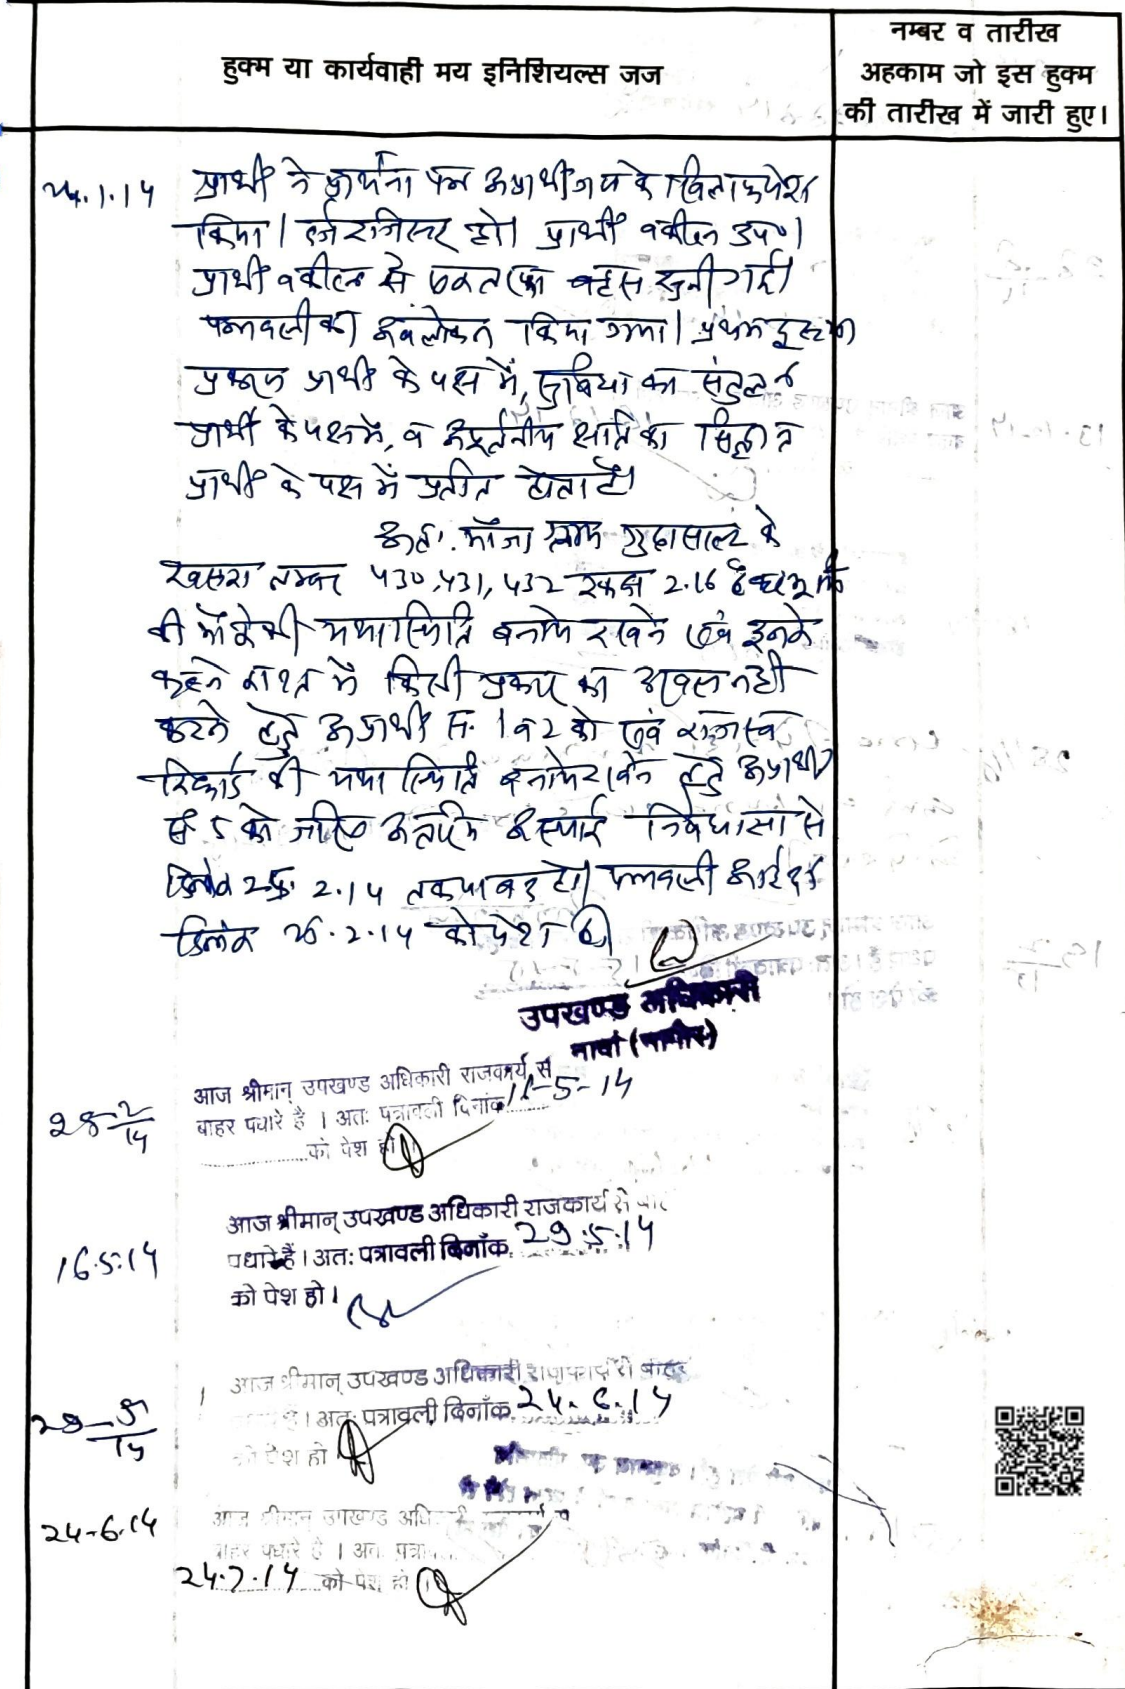 हुक्म या कार्यवाही मय इनिशियल्स जज
नम्बर व तारीख
अहकाम जो इस हुक्म
की तारीख में जारी हुए।
प्रार्थी ने प्रार्थना पत्र अप्रार्थीगण के खिलाफ पेश
किया। दर्ज रजिस्टर हो। प्रार्थी वकील उप०।
प्रार्थी वकील से एकतरफा बहस सुनी गई।
पत्रावली का अवलोकन किया गया। प्रथम दृष्टया
प्रकरण प्रार्थी के पक्ष में, सुविधा का संतुलन
प्रार्थी के पक्ष में, व अपूर्तनीय क्षति का सिद्धान्त
प्रार्थी के पक्ष में प्रतीत होता है।
अतः मौजा ग्राम गुढासाल्ट के
खसरा नम्बर 430, 431, 432 रकबा 2.16 हैक्टर भूमि
की मौके की यथास्थिति बनाये रखने एवं इनके
कब्जे काश्त में किसी प्रकार का दखल नहीं
करने हेतु अप्रार्थी सं. 1 व 2 को एवं राजस्व
रिकार्ड की यथास्थिति बनाये रखने हेतु अप्रार्थी
सं 5 को जरिए अन्तरिम अस्थाई निषेधाज्ञा से
दिनांक 2.14 तक पाबन्द हो। पत्रावली आईन्दा
दिनांक 2.14 को पेश हो
उपखण्ड अधिकारी
नावां (नागौर)
आज श्रीमान् उपखण्ड अधिकारी राजकार्य से
28-2/14 बाहर पधारे है । अतः पत्रावली दिनांक 16-5-14
को पेश हो
आज श्रीमान् उपखण्ड अधिकारी राजकार्य से बाहर
16.5.14 पधारे हैं। अतः पत्रावली दिनाँक 29.5.14
को पेश हो।
आज श्रीमान् उपखण्ड अधिकारी राजकार्य से बाहर
29-5/14 है। अतः पत्रावली दिनाँक 24.6.14
को पेश हो
24-6.14 आज श्रीमान उपखण्ड अधि
बाहर पधारे है । अतः पत्रा
24.7.14 को पेश हो